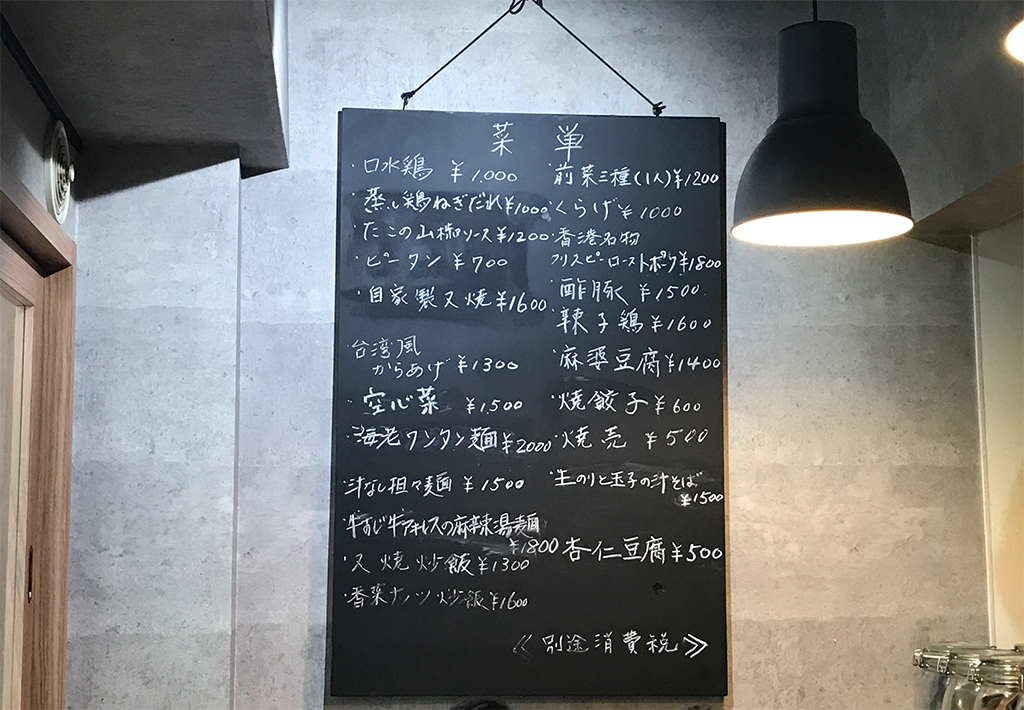 菜単
・口水鶏 ¥1,000
・蒸し鶏ねぎだれ¥1000
・たこの山椒ソース¥1200
・ピータン ¥700
・自家製叉焼¥1600
台湾風
からあげ ¥1300
・空心菜 ¥1,500
・海老ワンタン麺¥2000
・汁なし担々麺 ¥1500
・牛すじ牛アキレスの麻辣湯麺
¥1800
・叉焼炒飯¥1300
・香菜ナッツ炒飯¥1600
・前菜三種(1人)¥1200
・くらげ¥1000
・香港名物
クリスピーローストポーク¥1800
・酢豚 ¥1500
・辣子鶏 ¥1600
・麻婆豆腐¥1400
・焼餃子¥600
・焼売 ¥500
・生のりと玉子の汁そば
¥1500
杏仁豆腐¥500
≪別途消費税≫